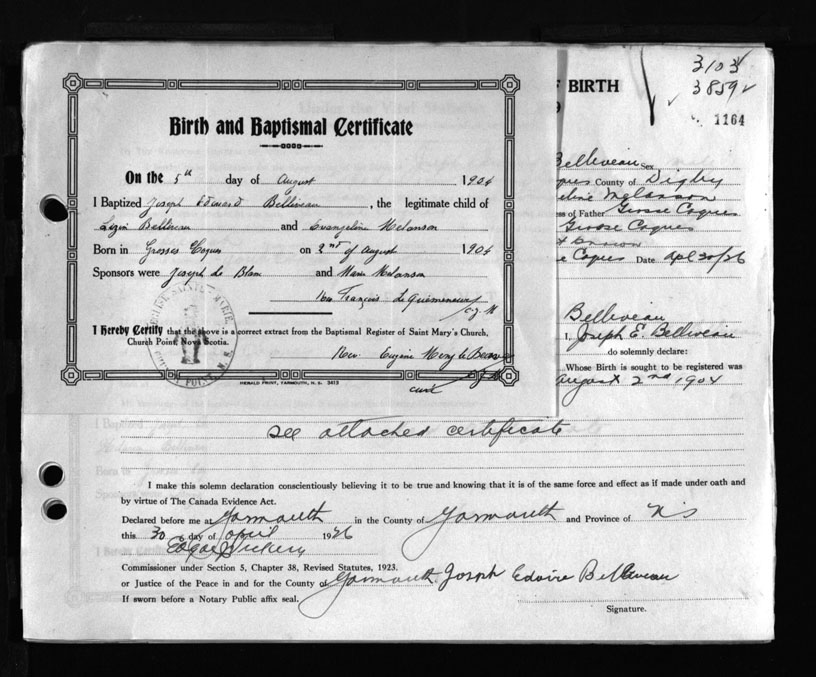 3103
3859
1164
BIRTH
Birth and Baptismal Certificate
On the 5th day of August 1904
I Baptized Joseph Edward Belliveau, the legitimate child of
Belliveau and Evangeline Melanson
Born in Grosses Coques on 2nd of August 1904
Sponsors were Joseph Le Blanc and Marie Melanson
François
I Hereby Certify that the above is a correct extract from the Baptismal Register of Saint Mary's Church,
Church Point, Nova Scotia.
Rev. Eugène
HERALD PRINT, YARMOUTH, N. S. 3413
curé
POINT, N.S.
Belliveau Sex
County of Digby
Melanson
of Father Grosse Coques
Grosse Coques
Coques Date Apl 30/26
Belliveau
I, Joseph E. Belliveau
do solemnly declare:
Whose Birth is sought to be registered was
August 2nd 1904
see attached certificate
I make this solemn declaration conscientiously believing it to be true and knowing that it is of the same force and effect as if made under oath and
by virtue of The Canada Evidence Act.
Declared before me at Yarmouth in the County of Yarmouth and Province of NS
this 30 day of April 1926
Edgar
Commissioner under Section 5, Chapter 38, Revised Statutes, 1923.
or Justice of the Peace in and for the County of Yarmouth. Joseph Belliveau
If sworn before a Notary Public affix seal.
Signature.